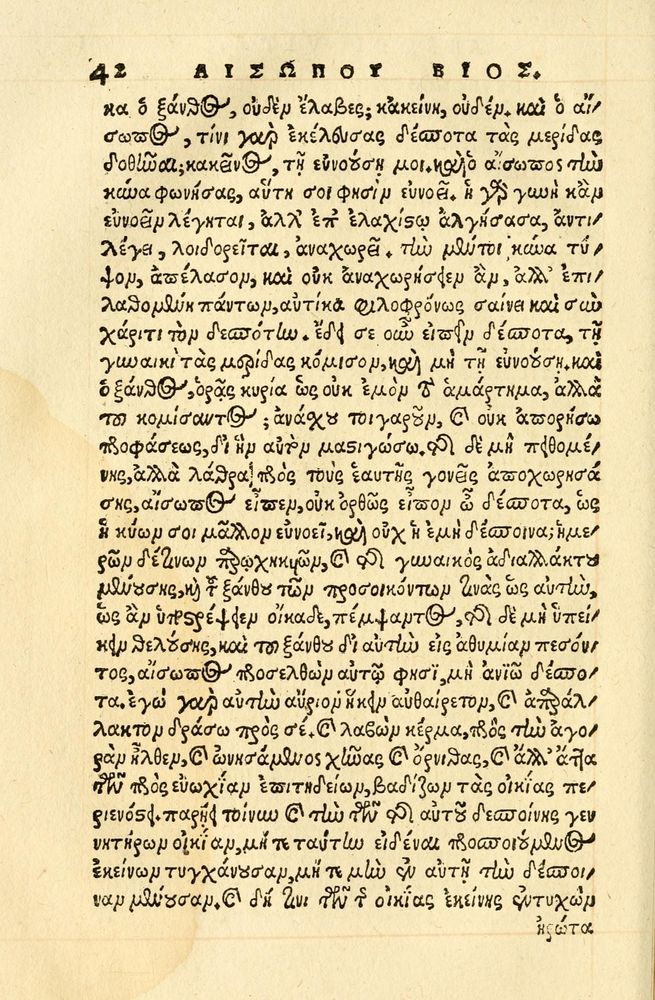 42 ΑΙΣΩΠΟΥ ΒΙΟΣ.
κα ὁ ξάνθος, οὐδὲν ἔλαβες; κἀκείνη, οὐδέν. καὶ ὁ αἴ-
σωπος, τίνι γὰρ ἐκέλευσας δέσποτα τὰς μερίδας
δοθῆναι; κἀκεῖνος, τῇ εὐνούσῃ μοι. καὶ ὁ αἴσωπος τὴν
κύνα φωνήσας, αὕτη σοι φησὶν εὐνοεῖ. ἡ γὰρ γυνὴ κἂν
εὐνοεῖν λέγηται, ἀλλ' ἐπ' ἐλαχίστῳ ἀλγήσασα, ἀντι-
λέγει, λοιδορεῖται, ἀναχωρεῖ. τὴν μέντοι κύνα τύ-
ψον, ἀπέλασον, καὶ οὐκ ἀναχωρήσειεν ἂν, ἀλλ' ἐπι-
λαθομένη πάντων, αὐτίκα φιλοφρόνως σαίνει καὶ σὺν
χάριτι τὸν δεσπότην. ἔδει σε οὖν εἰπεῖν δέσποτα, τῇ
γυναικὶ τὰς μερίδας κόμισον, καὶ μὴ τῇ εὐνούσῃ. καὶ
ὁ ξάνθος, ὁρᾷς κυρία ὡς οὐκ ἐμὸν τὸ ἁμάρτημα, ἀλλὰ
τοῦ κομίσαντος; ἀνάχου τοιγαροῦν, καὶ οὐκ ἀπορήσω
προφάσεως, δι' ἣν αὐτὸν μαστιγώσω. τῆς δὲ μὴ πειθομέ-
νης, ἀλλὰ λάθρα πρὸς τοὺς ἑαυτῆς γονεῖς ἀποχωρησά-
σης, αἴσωπος εἶπεν, οὐκ ὀρθῶς εἶπον ὦ δέσποτα, ὡς
ἡ κύων σοι μᾶλλον εὐνοεῖ, καὶ οὐχ ἡ ἐμὴ δέσποινα; ἡμε-
ρῶν δέ τινων παρῳχηκυιῶν, καὶ τῆς γυναικὸς ἀδιαλλάκτου
μενούσης, καὶ τοῦ ξάνθου τῶν προσοικόντων τινὰς ὡς αὐτὴν,
ὡς ἂν ὑποστρέψειεν οἴκαδε, πέμψαντος, τῆς δὲ μὴ ὑπεί-
κειν θελούσης, καὶ τοῦ ξάνθου δι' αὐτὴν εἰς ἀθυμίαν πεσόν-
τος, αἴσωπος προσελθὼν αὐτῷ φησὶ, μὴ ἀνιῶ δέσπο-
τα. ἐγὼ γὰρ αὐτὴν αὔριον ἥκειν αὐθαίρετον, καὶ ἀπαράλ-
λακτον δράσω πρὸς σέ. καὶ λαβὼν κέρμα, πρὸς τὴν ἀγο-
ρὰν ἦλθεν, καὶ ὠνησάμενος χῆνας καὶ ὄρνιθας, καὶ ἄλλ' ἄττα
τῶν πρὸς εὐωχίαν ἐπιτηδείων, βαδίζων τὰς οἰκίας πε-
ριενόστει. παρῄει τοίνυν καὶ τὴν τῶν τῆς αὐτοῦ δεσποίνης γεν
νητήρων οἰκίαν, μή τε ταύτην εἰδέναι προσποιούμενος
ἐκείνων τυγχάνουσαν, μή τε μὴν ἐν αὐτῇ τὴν δέσποι-
ναν μένουσαν. καὶ δή τινι τῶν τῆς οἰκίας ἐκείνης ἐντυχὼν
ἠρώτα